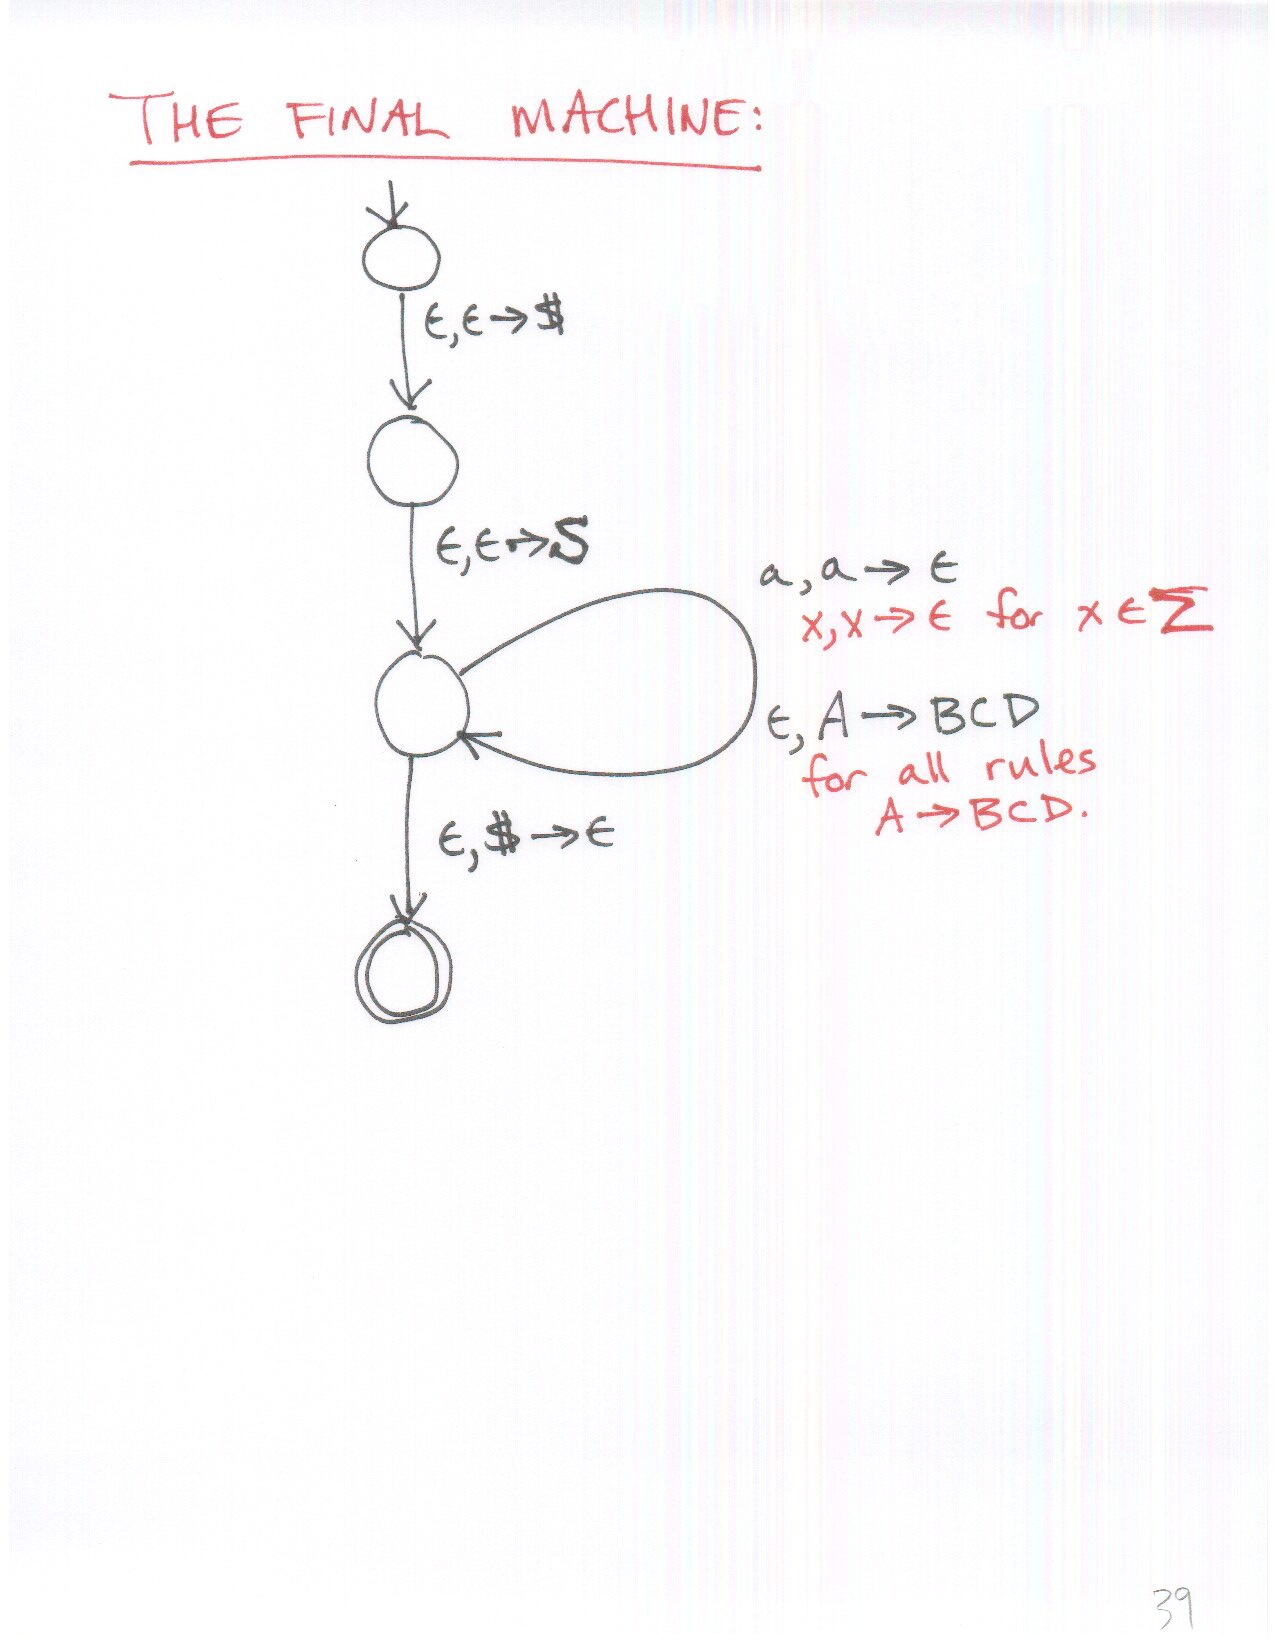 THE FINAL MACHINE:
ϵ,ϵ→$
ϵ,ϵ→S
a,a→ϵ
x,x→ϵ for x∈Σ
ϵ,A→BCD
for all rules
A→BCD.
ϵ,$→ϵ
39